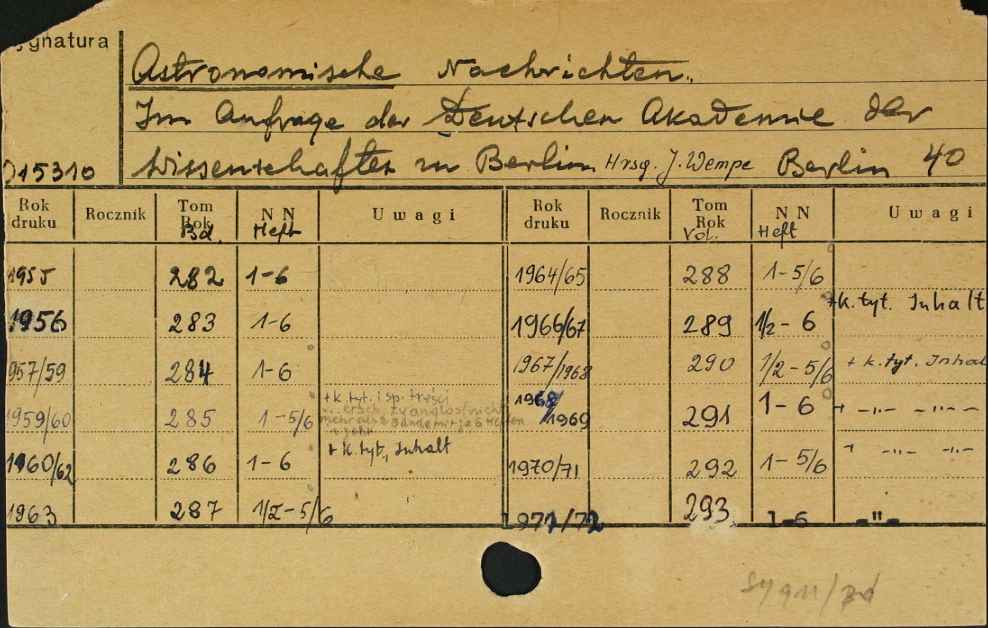 Sygnatura
Astronomische Nachrichten.
Im Anfrage der Deutschen Akademie der
015310 Wissenschaften in Berlin Hrsg. J. Wempe Berlin 40
Rok druku Rocznik Tom Rok Bd. NN Heft Uwagi Rok druku Rocznik Tom Rok Vol. NN Heft Uwagi
1955 282 1-6 1964/65 288 1-5/6
1956 283 1-6 1966/67 289 1/2-6 +k.tyt. Inhalt
957/59 284 1-6 1967/1968 290 1/2-5/6 + k.tyt. Inhal
1959/60 285 1-5/6 +k.tyt. i sp. treści 1968/1969 291 1-6 + -"- -"-
1960/62 286 1-6 + k.tyt, Inhalt 1970/71 292 1-5/6 " -"- -"-
1963 287 1/2-5/6 1971/72 293 1-6 -"-